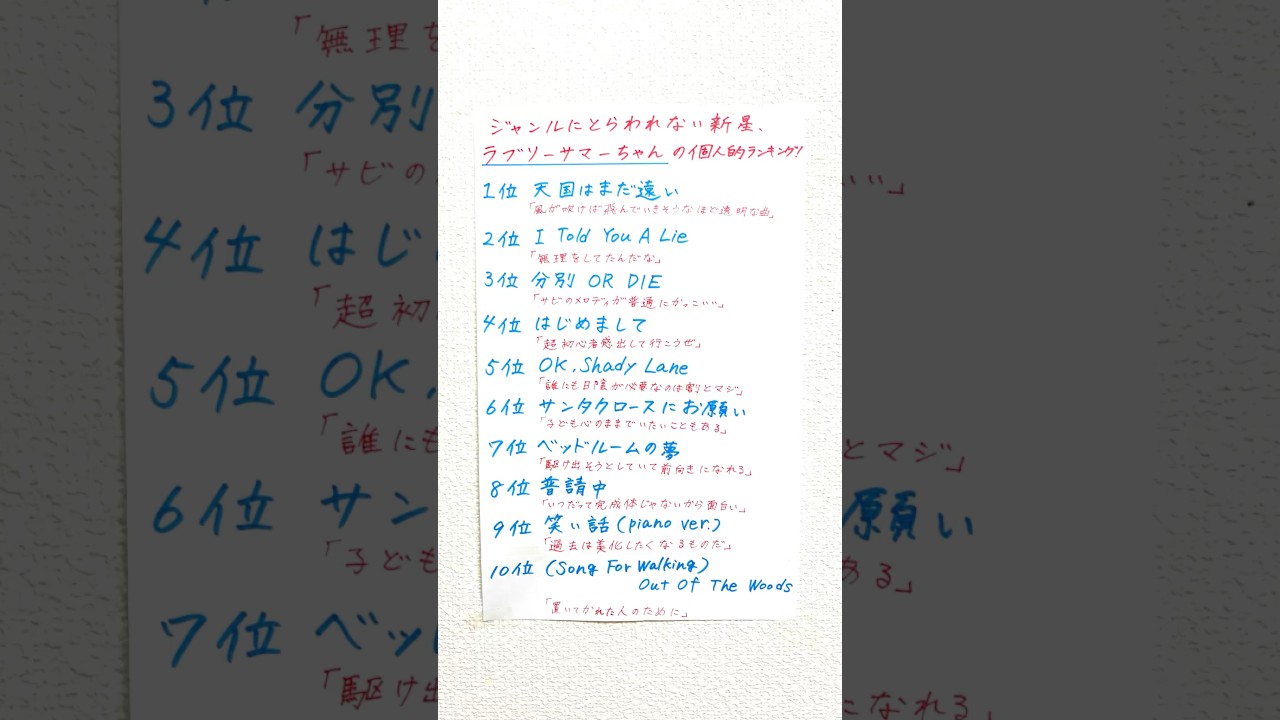 ジャンルにとらわれない新星、
ラブリーサマーちゃんの個人的ランキング!
1位 天国はまだ遠い
「風が吹けば飛んでいきそうなほど透明な曲」
2位 I Told You A Lie
「無理をしてたんだな」
3位 分別 OR DIE
「サビのメロディが普通にかっこいい」
4位 はじめまして
「超初心者感出して行こうぜ」
5位 OK, Shady Lane
「誰にも日陰が必要なのは割とマジ」
6位 サンタクロースにお願い
「子ども心のままでいたいこともある」
7位 ベッドルームの夢
「駆け出そうとしていて前向きになれる」
8位 普請中
「いつだって完成体じゃないから面白い」
9位 笑い話(piano ver.)
「過去は美化したくなるものだ」
10位 (Song For Walking)
Out Of The Woods
「置いてかれた人のために」